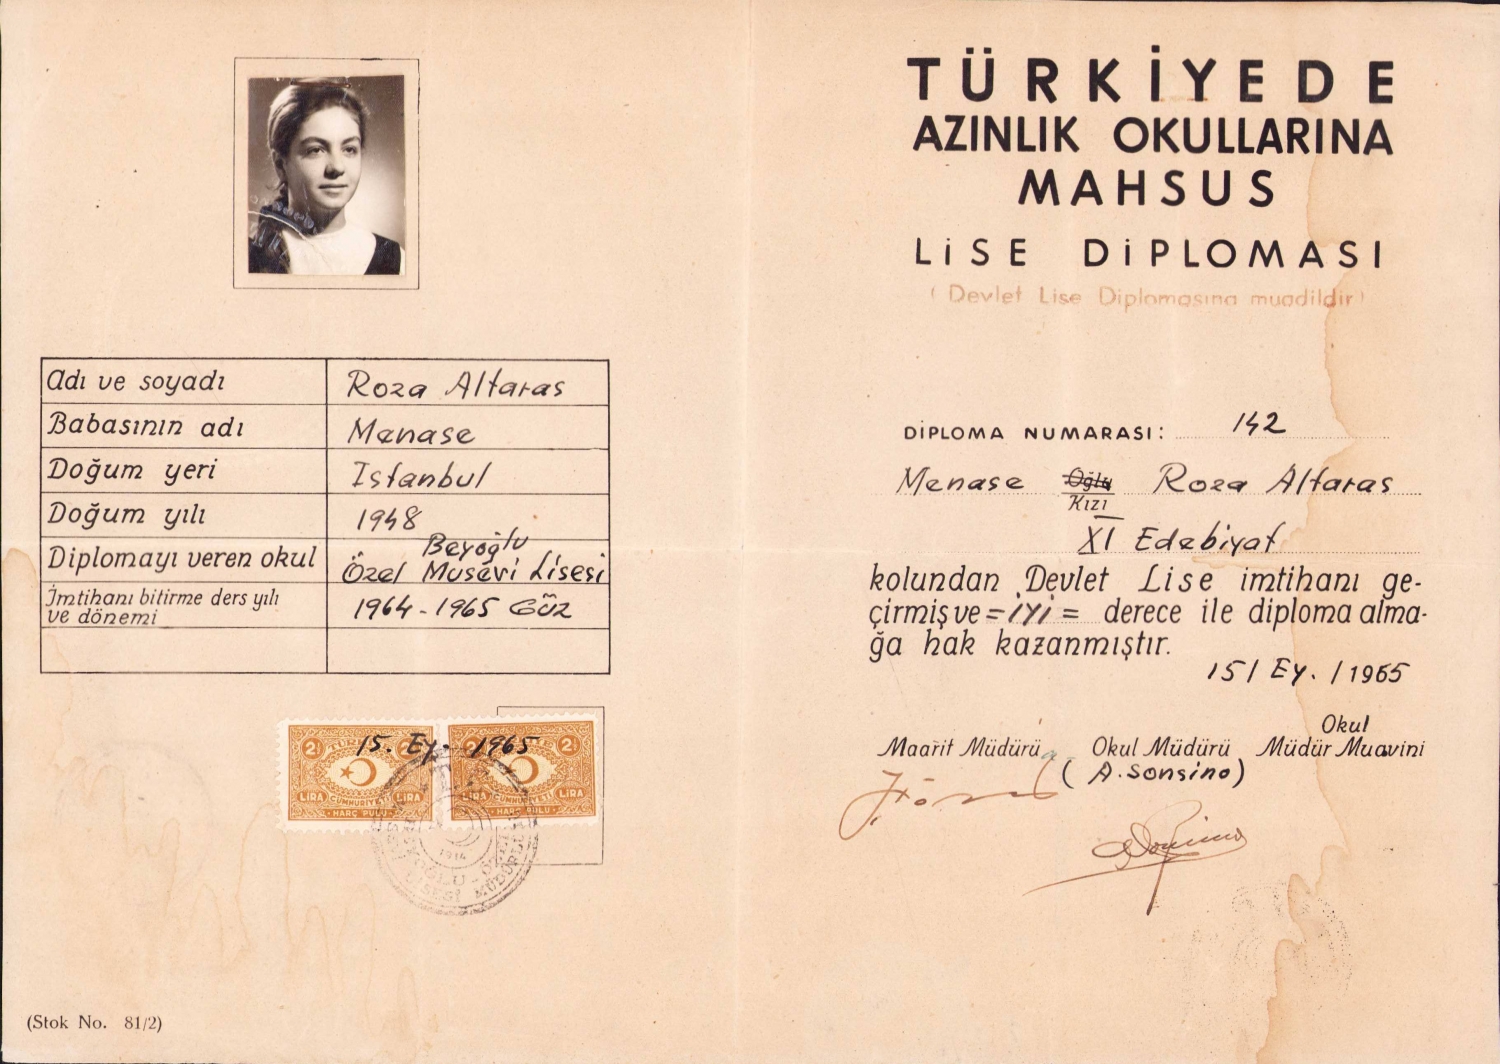 Adı ve soyadı Roza Altaras
Babasının adı Menase
Doğum yeri Istanbul
Doğum yılı 1948
Diplomayı veren okul Beyoğlu
Özel Musevi Lisesi
İmtihanı bitirme ders yılı
ve dönemi 1964-1965 GÜZ
15. Ey. 1965
2½ 2½ 2½
LİRA CÜMHURİYETİ LİRA
HARÇ PULU
LİRA CÜMHURİYETİ LİRA
HARÇ PULU
1914
(Stok No. 81/2)
TÜRKİYEDE
AZINLIK OKULLARINA
MAHSUS
LİSE DİPLOMASI
(Devlet Lise Diplomasına muadildir)
DİPLOMA NUMARASI: 142
Menase Oğlu Roza Altaras
Kızı
XI Edebiyat
kolundan Devlet Lise imtihanı ge-
çirmiş ve =iyi= derece ile diploma alma-
ğa hak kazanmıştır.
15/ Ey. /1965
Okul
Maarit Müdürü Okul Müdürü Müdür Muavini
(A. Sonsino)